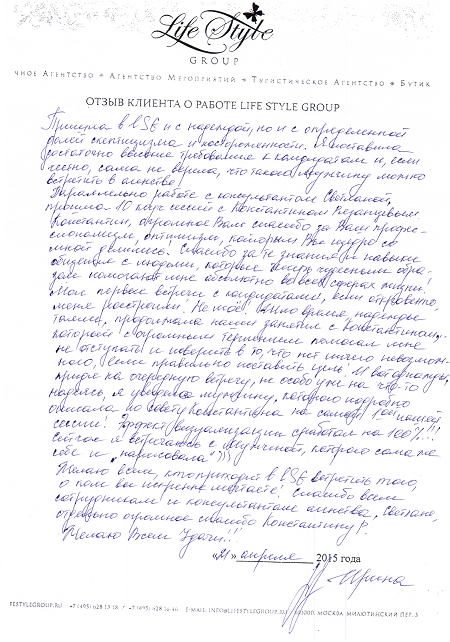 Life Style
GROUP
чное Агентство * Агентство Мероприятий * Туристическое Агентство * Бутик
ОТЗЫВ КЛИЕНТА О РАБОТЕ LIFE STYLE GROUP
Пришла в LSG и с надеждой, но и с определенной
долей скептицизма и настороженности. Я поставила
достаточно высокие требования к кандидатам и, если
честно, сама не верила, что такого мужчину можно
встретить в агентстве!
Параллельно работе с консультантом Светланой,
прошла 10 коуч сессий с Константином
Константин, огромное Вам спасибо за Ваш профес-
сионализм, оптимизм, которым Вы щедро со
мной делились! Спасибо за те знания и навыки
общения с людьми, которые чудесным обра-
зом помогают мне абсолютно во всех сферах жизни!
Мои первые встречи с кандидатами, если откровенно,
меня расстроили! Не моё! Но время, надежда
таяли, продолжала наши занятия с Константином,
который с огромным терпением помогал мне
не отступать и поверить в то, что нет ничего невозмож-
ного, если правильно поставить цель! И вот однажды,
придя на очередную встречу, не особо уже на что-то
надеясь, я увидела мужчину, которого подробно
описала по совету Константина на самой 1ой нашей
сессии! Эффект визуализации сработал на 100%!!!
Сейчас я встречаюсь с мужчиной, которого сама же
себе и „нарисовала")))
Желаю всем, кто приходит в LSG встретить того,
о ком вы искренне мечтаете! Спасибо всем
сотрудникам и консультантам агентства, Светлане,
отдельно огромное спасибо Константину Р.
Желаю Всем Удачи!!!
«21» апреля 2015 года
Ирина
FESTYLEGROUP.RU +7 (495) 628 13 18 E-MAIL: INFO@LIFESTYLEGROUP.RU МОСКВА МИЛЮТИНСКИЙ ПЕР. 3